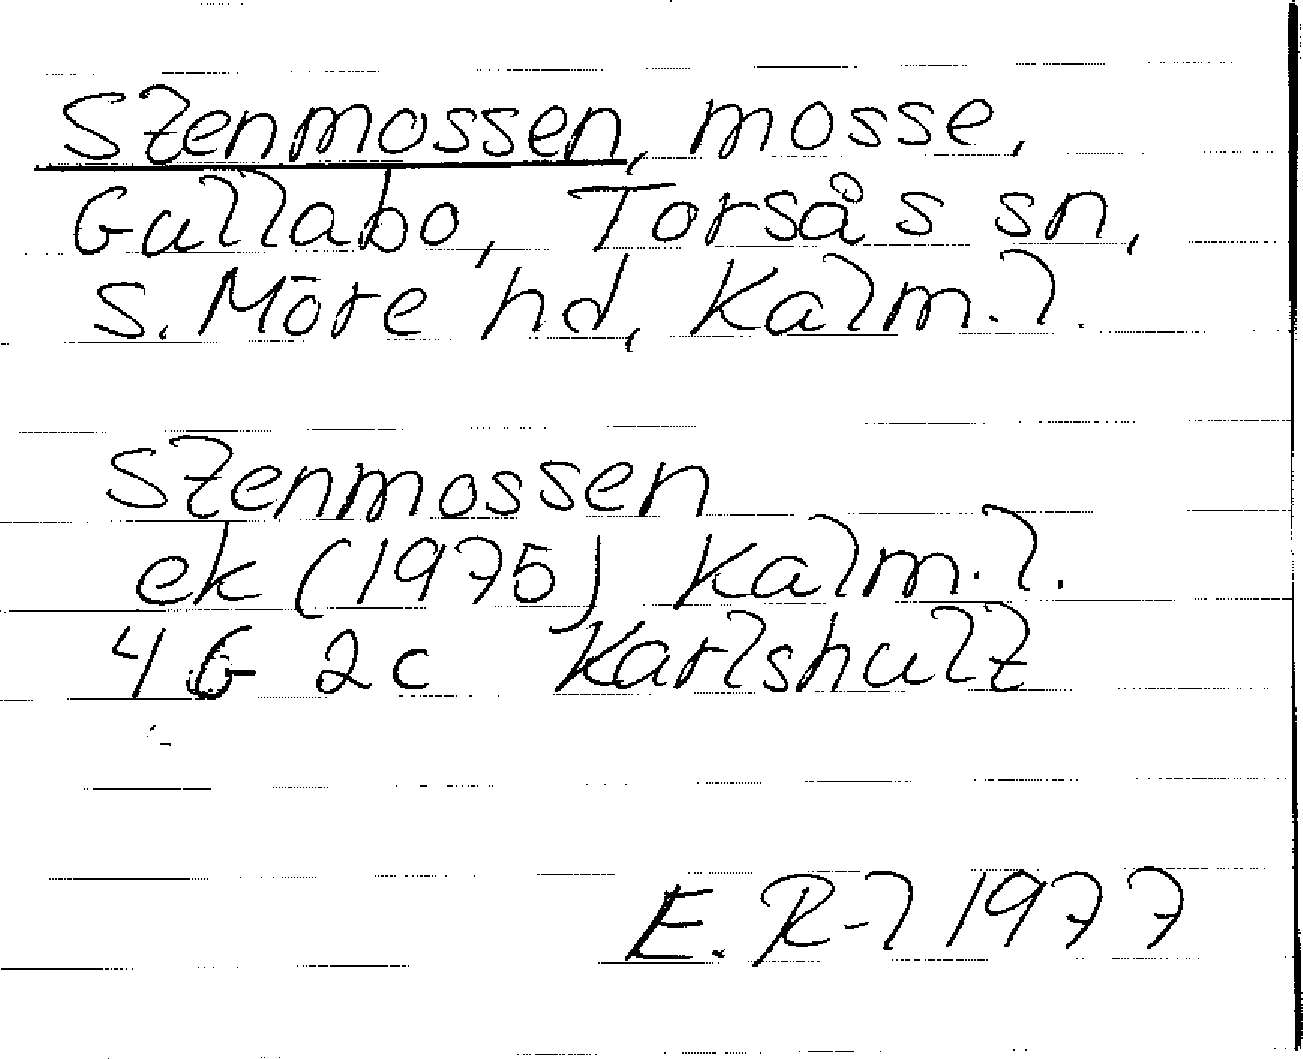 Stenmossen, mosse,
Gullabo, Torsås sn,
S. Möre hd, Kalm. l.
Stenmossen
ek (1975) Kalm. l.
4 G 2c Karlshult
E. R-l 1977